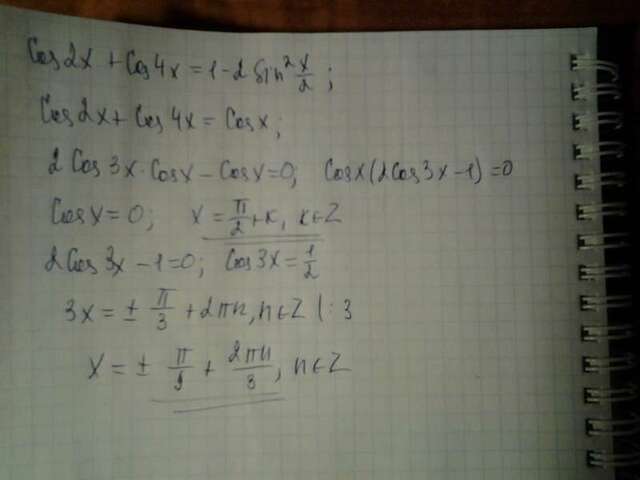 Cos2x + Cos4x = 1 - 2 Sin² x/2 ;
Cos2x + Cos4x = Cosx ;
2 Cos3x · Cosx - Cosx = 0; Cosx(2Cos3x - 1) = 0
Cosx = 0; x = π/2 + K, K ∈ Z
2Cos3x - 1 = 0; Cos3x = 1/2
3x = ± π/3 + 2πn, n ∈ Z | : 3
X = ± π/9 + 2πn/3, n ∈ Z